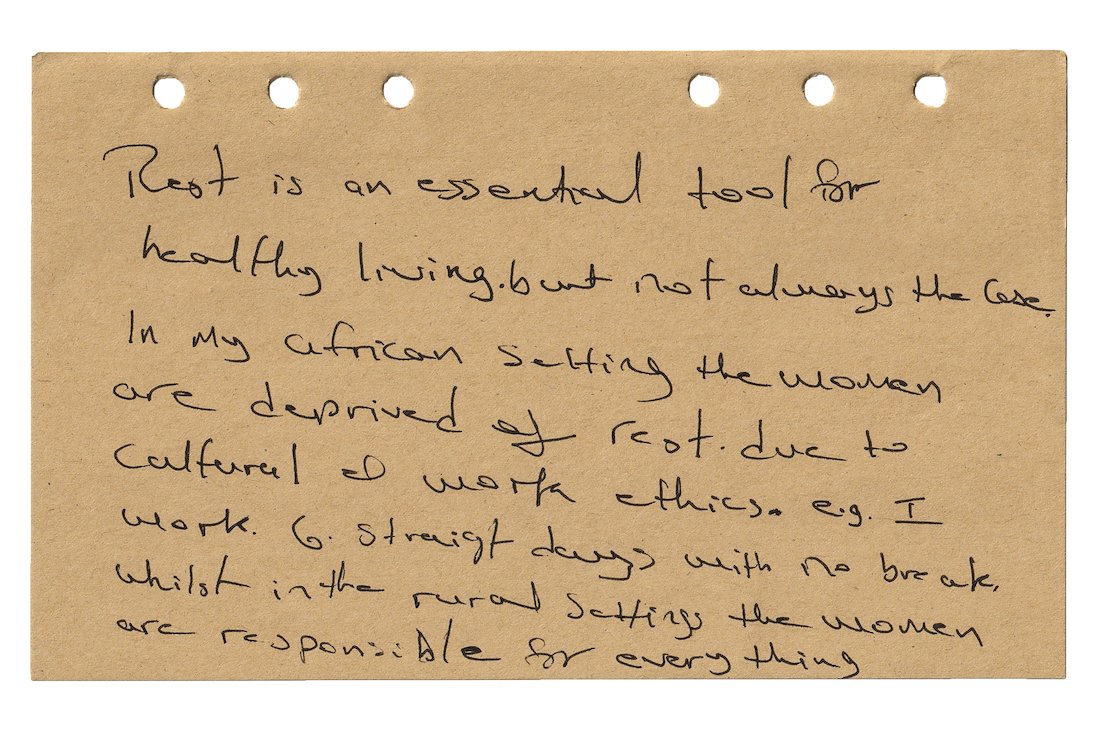 Rest is an essential tool for
healthy living. but not always the case.
In my african setting the women
are deprived of rest. due to
cultural & work ethics. e.g. I
work. 6. straigt days with no break.
whilst in the rural settings the women
are responsible for everything